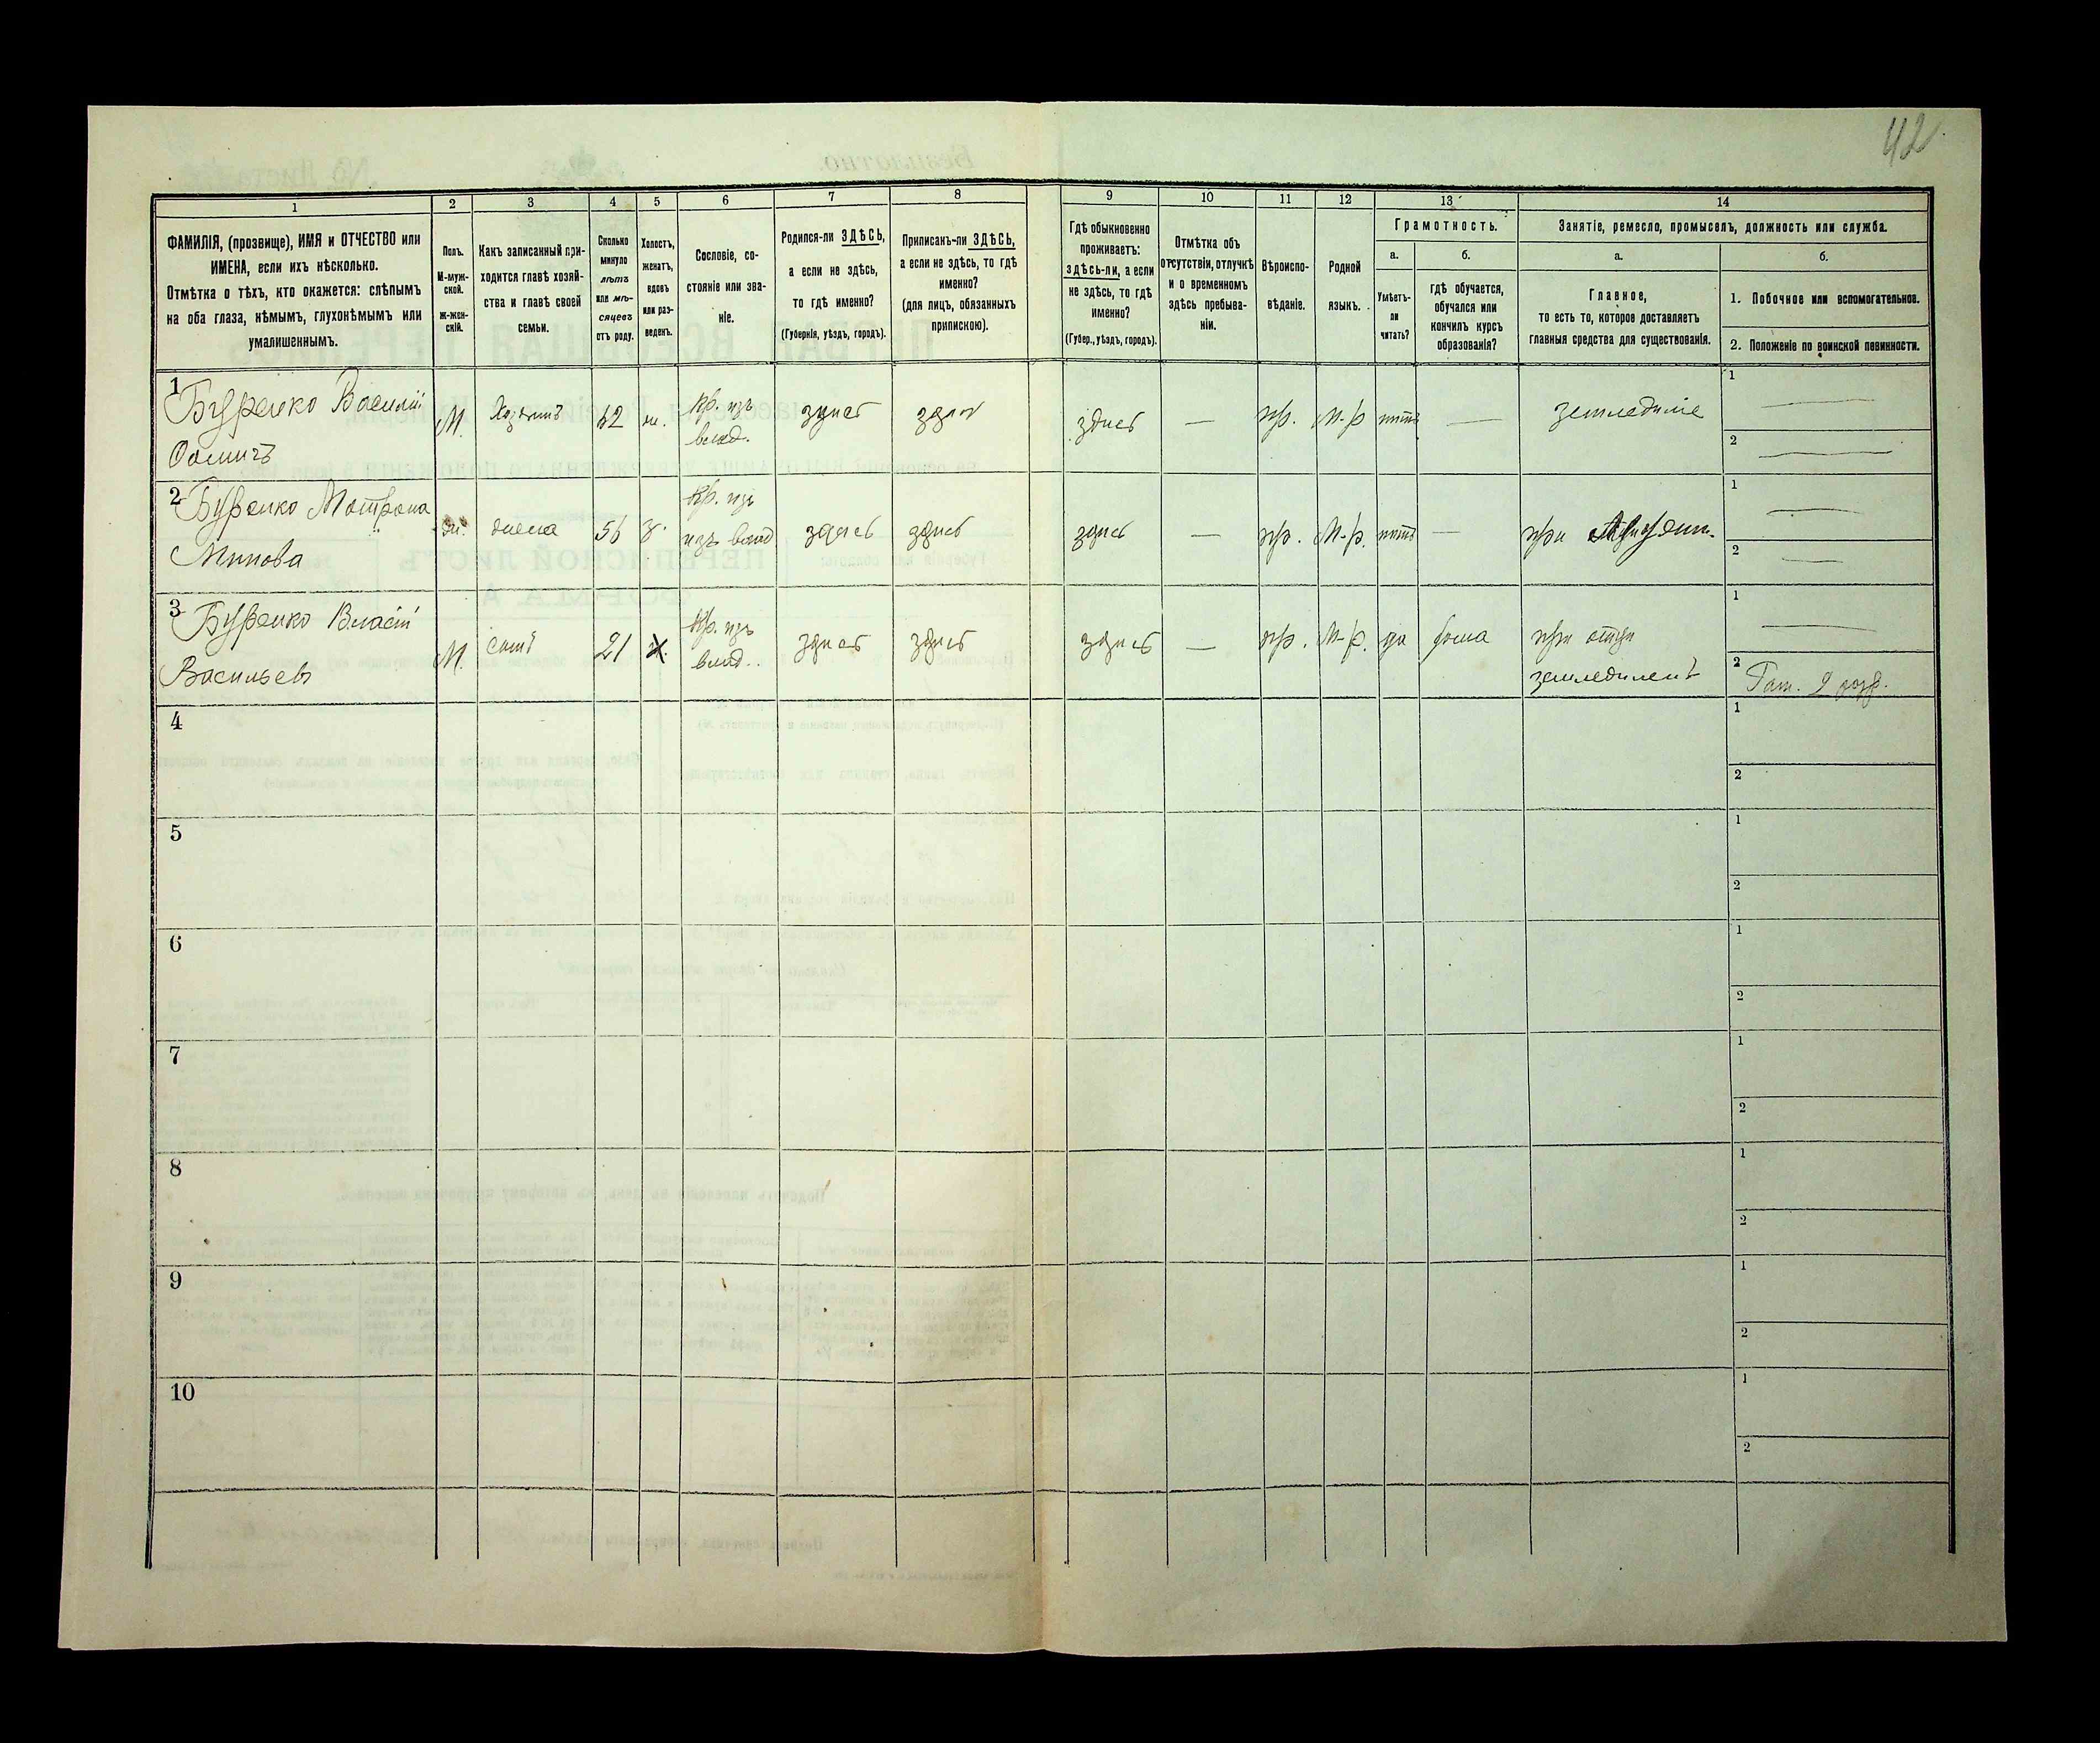 42
1
2
3
4
5
6
7
8
9
10
11
12
13
14
ФАМИЛІЯ, (прозвище), ИМЯ и ОТЧЕСТВО или
ИМЕНА, если ихъ нѣсколько.
Отмѣтка о тѣхъ, кто окажется: слѣпымъ
на оба глаза, нѣмымъ, глухонѣмымъ или
умалишеннымъ.
Полъ.
М-муж-
ской.
ж-жен-
скій.
Какъ записанный при-
ходится главѣ хозяй-
ства и главѣ своей
семьи.
Сколько
минуло
лѣтъ
или мѣ-
сяцевъ
отъ роду.
Холостъ,
женатъ,
вдовъ
или раз-
веденъ.
Сословіе, со-
стояніе или зва-
ніе.
Родился-ли ЗДѢСЬ,
а если не здѣсь,
то гдѣ именно?
(Губернія, уѣздъ, городъ).
Приписанъ-ли ЗДѢСЬ,
а если не здѣсь, то гдѣ
именно?
(для лицъ, обязанныхъ
припискою).
Гдѣ обыкновенно
проживаетъ:
здѣсь-ли, а если
не здѣсь, то гдѣ
именно?
(Губер., уѣздъ, городъ).
Отмѣтка объ
отсутствіи, отлучкѣ
и о временномъ
здѣсь пребыва-
ніи.
Вѣроиспо-
вѣданіе.
Родной
языкъ.
Грамотность.
а.
Умѣетъ-
ли
читать?
б.
гдѣ обучается,
обучался или
кончилъ курсъ
образованія?
Занятіе, ремесло, промыселъ, должность или служба.
а.
Главное,
то есть то, которое доставляетъ
главныя средства для существованія.
б.
1. Побочное или вспомогательное.
2. Положеніе по воинской повинности.
1
Буренко Василій
М.
Хозяинъ
ж.
Кр. изъ
влад.
здись
здись
здись
—
пр.
М-р
нитъ
—
земледиліе
1
2
2
Буренко Мотрона
ж.
жена
56
з.
Кр. изъ
изъ влад
здись
здись
здись
—
пр.
М-р.
нитъ
—
при
1
2
3
Буренко Власій
Васильевъ
М.
сынъ
21
х.
Кр. изъ
влад.
здись
здись
здись
—
пр.
М-р.
да
дома
при отци
земледилецъ
1
2
Рат. 2 розр.
4
1
2
5
1
2
6
1
2
7
1
2
8
1
2
9
1
2
10
1
2